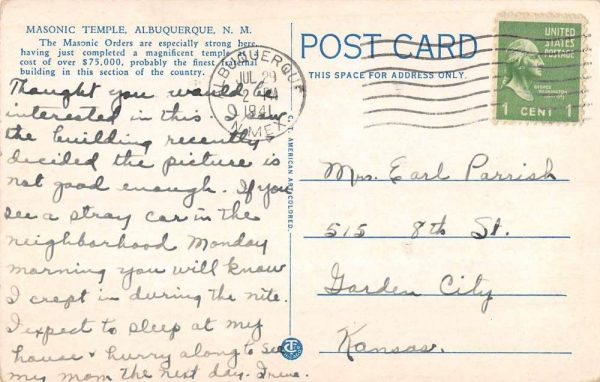 MASONIC TEMPLE, ALBUQUERQUE, N. M.
The Masonic Orders are especially strong here,
having just completed a magnificent temple
cost of over $75,000, probably the finest
building in this section of the country.
Thought you would be
interested in this. I saw
the building recently &
decided the picture is
not good enough. If you
see a stray car in the
neighborhood Monday
morning you will know
I crept in during the nite.
I expect to sleep at my
house & hurry along to see
my mom the next day. Irene.
ALBUQUERQUE
JUL 29
2
1941
N. MEX.
C. T. AMERICAN ART COLORED
POST CARD
THIS SPACE FOR ADDRESS ONLY.
UNITED
STATES
POSTAGE
GEORGE
WASHINGTON
1 CENT 1
Mrs. Earl Parrish
515 8th St.
Garden City
Kansas.